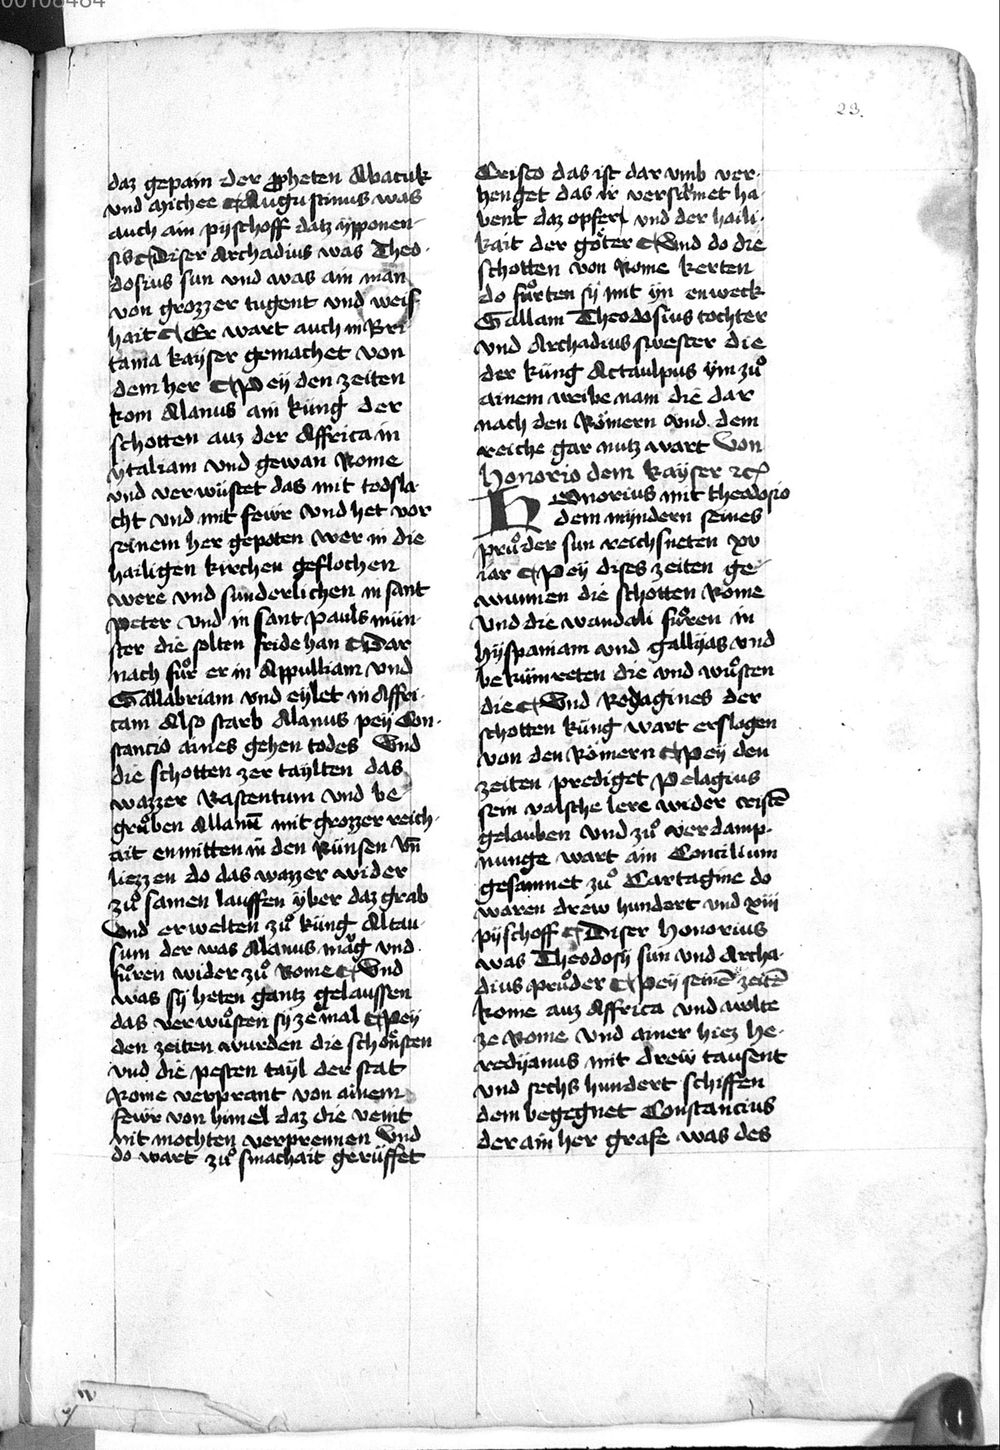 00108484
23.
daz gepain der ꝓpheten Abacuk
vnd Michee ¶ Augustinus was
auch ain pyschoff datz ypponen-
sis ¶ Diser Archadius was Theo-
dosius sun vnd was ain man
von grozzer tugent vnd weis
hait ¶ Er wart auch in Bri
tania kayser gemachet von
dem her ¶ Pey den zeiten
kom Alanus ain küng der
schotten auz der Affrica in
ytaliam vnd gewan Rome
vnd verwüstet das mit todsla
cht vnd mit fewr vnd het vor
seinem her gepoten wer in die
hailigen kirchen geflochen
were vnd sunderlichen in sant
Peter vnd in sant Pauls mün-
ster die solten fride han ¶ Dar
nach fuͦr er in Appulliam vnd
Gallabriam vnd eylet in Affri-
cam Also starb Alanus pey Con-
stancio aines gehen todes Vnd
die schotten zer taylten das
wazzer Bastentum vnd be
gruͦben Allanū mit grozzer reich-
ait enmitten in den Rünsen vn̄
liezzen do das wazzer wider
zuͦ samen lauffen yber daz grab
Vnd erwelten zuͦ küng Altau-
sum der was Alanus mag vnd
fuͦren wider zuͦ Rome ¶ Vnd
was sy heten gantz gelaussen
das verwuͦsten sy ze mal ¶ Pey
den zeiten wurden die schoͤnsten
vnd die pesten tayl der stat
Rome verprant von ainem
fewr von himel daz die venit
nit mochten verprennen Vnd
do wart zuͦ smachait gerüffet
Cristo das ist dar vmb ver-
henget das ir versumet ha-
bent daz opfer vnd der haili-
kait der goͤter ¶ Vnd do die
schotten von Rome kerten
do fuͦrten sy mit yn enweck
Gallam Theodosius tochter
vnd Archadius swester die
der küng Actaulpus ym zuͦ
ainem weibe nam die dar
nach den Römern vnd dem
reiche gar nutz wart Von
Honorio dem kayser ⁊c̄
Honorius mit theodosio
dem myndern seines
pruͦder sun reichsneten xv
iar ¶ Pey dises zeiten ge-
wunnen die schotten Rome
vnd die wandali fuͦren in
hyspaniam vnd gallyas vnd
bekümreten die vnd wuͦsten
die ¶ Vnd Redagines der
schotten küng wart erslagen
von den Römern ¶ Pey den
zeiten prediget Pelagius
sein valsche lere wider cristē
gelauben vnd zuͦ verdamp-
nunge wart ain Concilium
gesamnet zuͦ Cartagine do
waren drew hundert vnd xiii
pyschoff ¶ Diser Honorius
was Theodosy sun vnd Archa-
dius pruͦder ¶ Pey seinē zeitē
kome auz Affrica vnd wolte
ze Rome vnd ainer hiez he-
redyanus mit drew tausent
vnd sechs hundert schiffen
dem begegnet Constancius
der ain her grafe was des